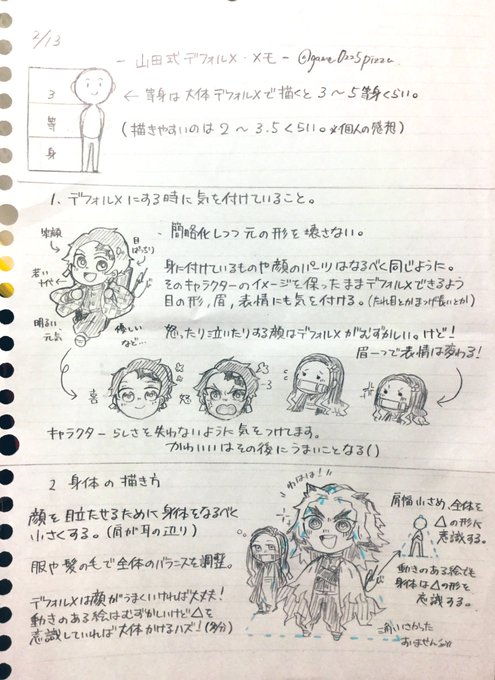 2/13
- 山田式デフォルメ・メモ - @game0225pizza.
3
等
身
← 等身は大体デフォルメで描くと3〜5等身くらい。
(描きやすいのは2〜3.5くらい。※個人の感想)
1. デフォルメにする時に気を付けていること。
・簡略化しつつ元の形を壊さない。
笑顔
目ぱっちり
若い
明るい
元気
優しい
など…
身に付けているものや顔のパーツはなるべく同じように。
そのキャラクターのイメージを保ったままデフォルメできるよう
目の形,眉,表情にも気を付ける。(たれ目とかまつげ長いとか)
怒ったり泣いたりする顔はデフォルメがむずかしい。けど!
眉一つで表情は変わる!
喜
怒
キャラクターらしさを失わないように気をつけてます。
かわいいはその後にうまいことなる()
2 身体の描き方
顔を目立たせるために身体をなるべく
小さくする。(肩が耳の辺り)
服や髪の毛で全体のバランスを調整。
デフォルメは顔がうまくいければ大丈夫!
動きのある絵はむずかしいけど△を
意識していれば大体かけるハズ!(多分)
わはは!
肩幅小さめ,全体を
△の形に
意識する。
動きのある絵でも
身体は△の形を
意識する。